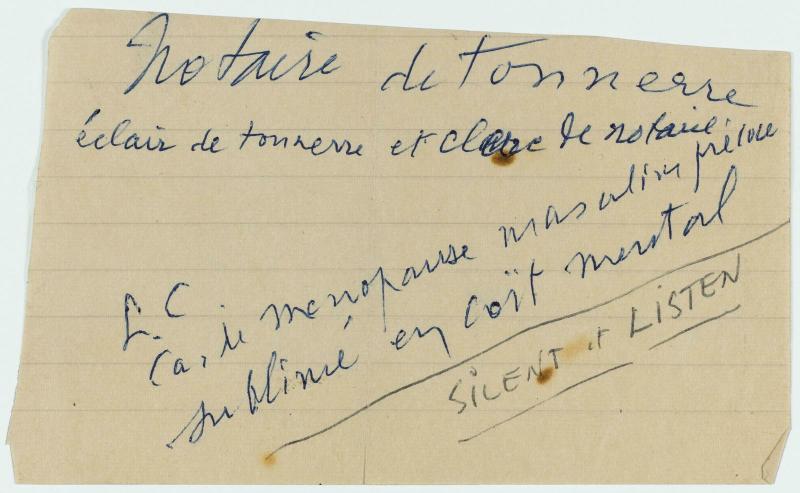 Notaire de tonnerre
éclair de tonnerre et clerc de notaire.
L.C
Cas de menopause masculin précoce
sublimé en coït mental
SILENT et LISTEN